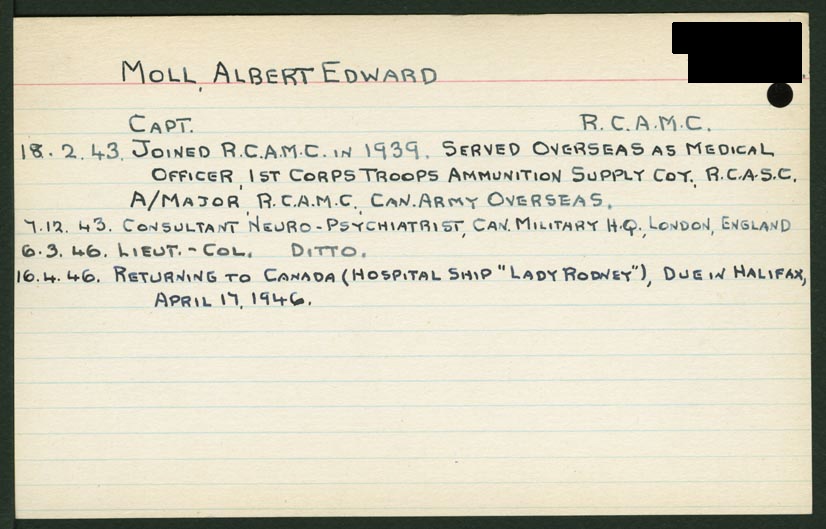 MOLL, ALBERT EDWARD
CAPT. R.C.A.M.C.
18.2.43. JOINED R.C.A.M.C. IN 1939. SERVED OVERSEAS AS MEDICAL
OFFICER, 1ST CORPS TROOPS AMMUNITION SUPPLY COY., R.C.A.S.C.
A/MAJOR, R.C.A.M.C., CAN. ARMY OVERSEAS.
7.12.43. CONSULTANT NEURO-PSYCHIATRIST, CAN. MILITARY H.Q., LONDON, ENGLAND
6.3.46. LIEUT.-COL. DITTO.
16.4.46. RETURNING TO CANADA (HOSPITAL SHIP "LADY RODNEY"), DUE IN HALIFAX,
APRIL 17, 1946.